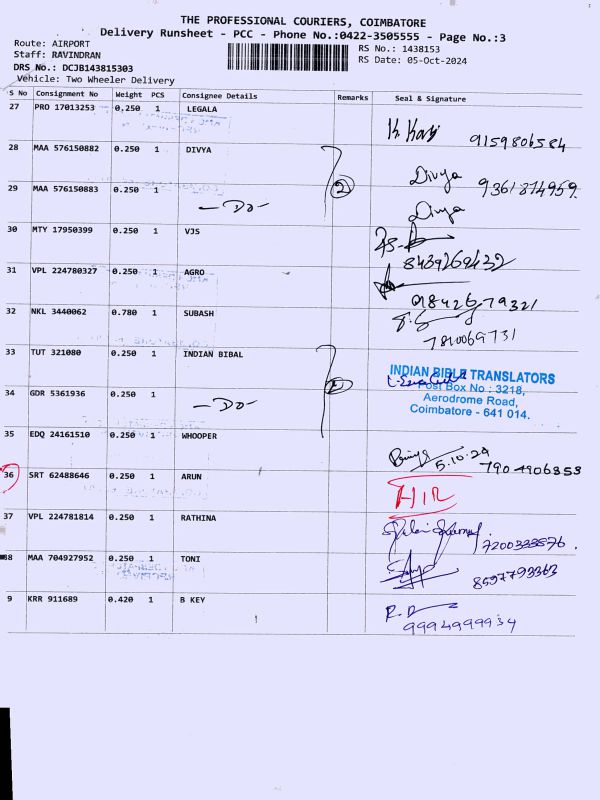 THE PROFESSIONAL COURIERS, COIMBATORE
Delivery Runsheet - PCC - Phone No.:0422-3505555 - Page No.:3
Route: AIRPORT
Staff: RAVINDRAN
RS No.: 1438153
DRS No.: DCJB143815303
RS Date: 05-Oct-2024
Vehicle: Two Wheeler Delivery
S No Consignment No Weight PCS Consignee Details Remarks Seal & Signature
27 PRO 17013253 0.250 1 LEGALA 9159806584
28 MAA 576150882 0.250 1 DIVYA Divya 9361274959.
29 MAA 576150883 0.250 1 —Do— 2 Divya
30 MTY 17950399 0.250 1 VJS 8439269432
31 VPL 224780327 0.250 1 AGRO 9842679321
32 NKL 3440062 0.780 1 SUBASH 7810069731
33 TUT 321080 0.250 1 INDIAN BIBAL
INDIAN BIBLE TRANSLATORS
Post Box No : 3218,
Aerodrome Road,
Coimbatore - 641 014.
34 GDR 5361936 0.250 1 —Do— 2
35 EDQ 24161510 0.250 1 WHOOPER 5.10.24 7904906353
36 SRT 62488646 0.250 1 ARUN HIR
37 VPL 224781814 0.250 1 RATHINA 7200333576.
38 MAA 704927952 0.250 1 TONI 8597793363
9 KRR 911689 0.420 1 B KEY 9994999934